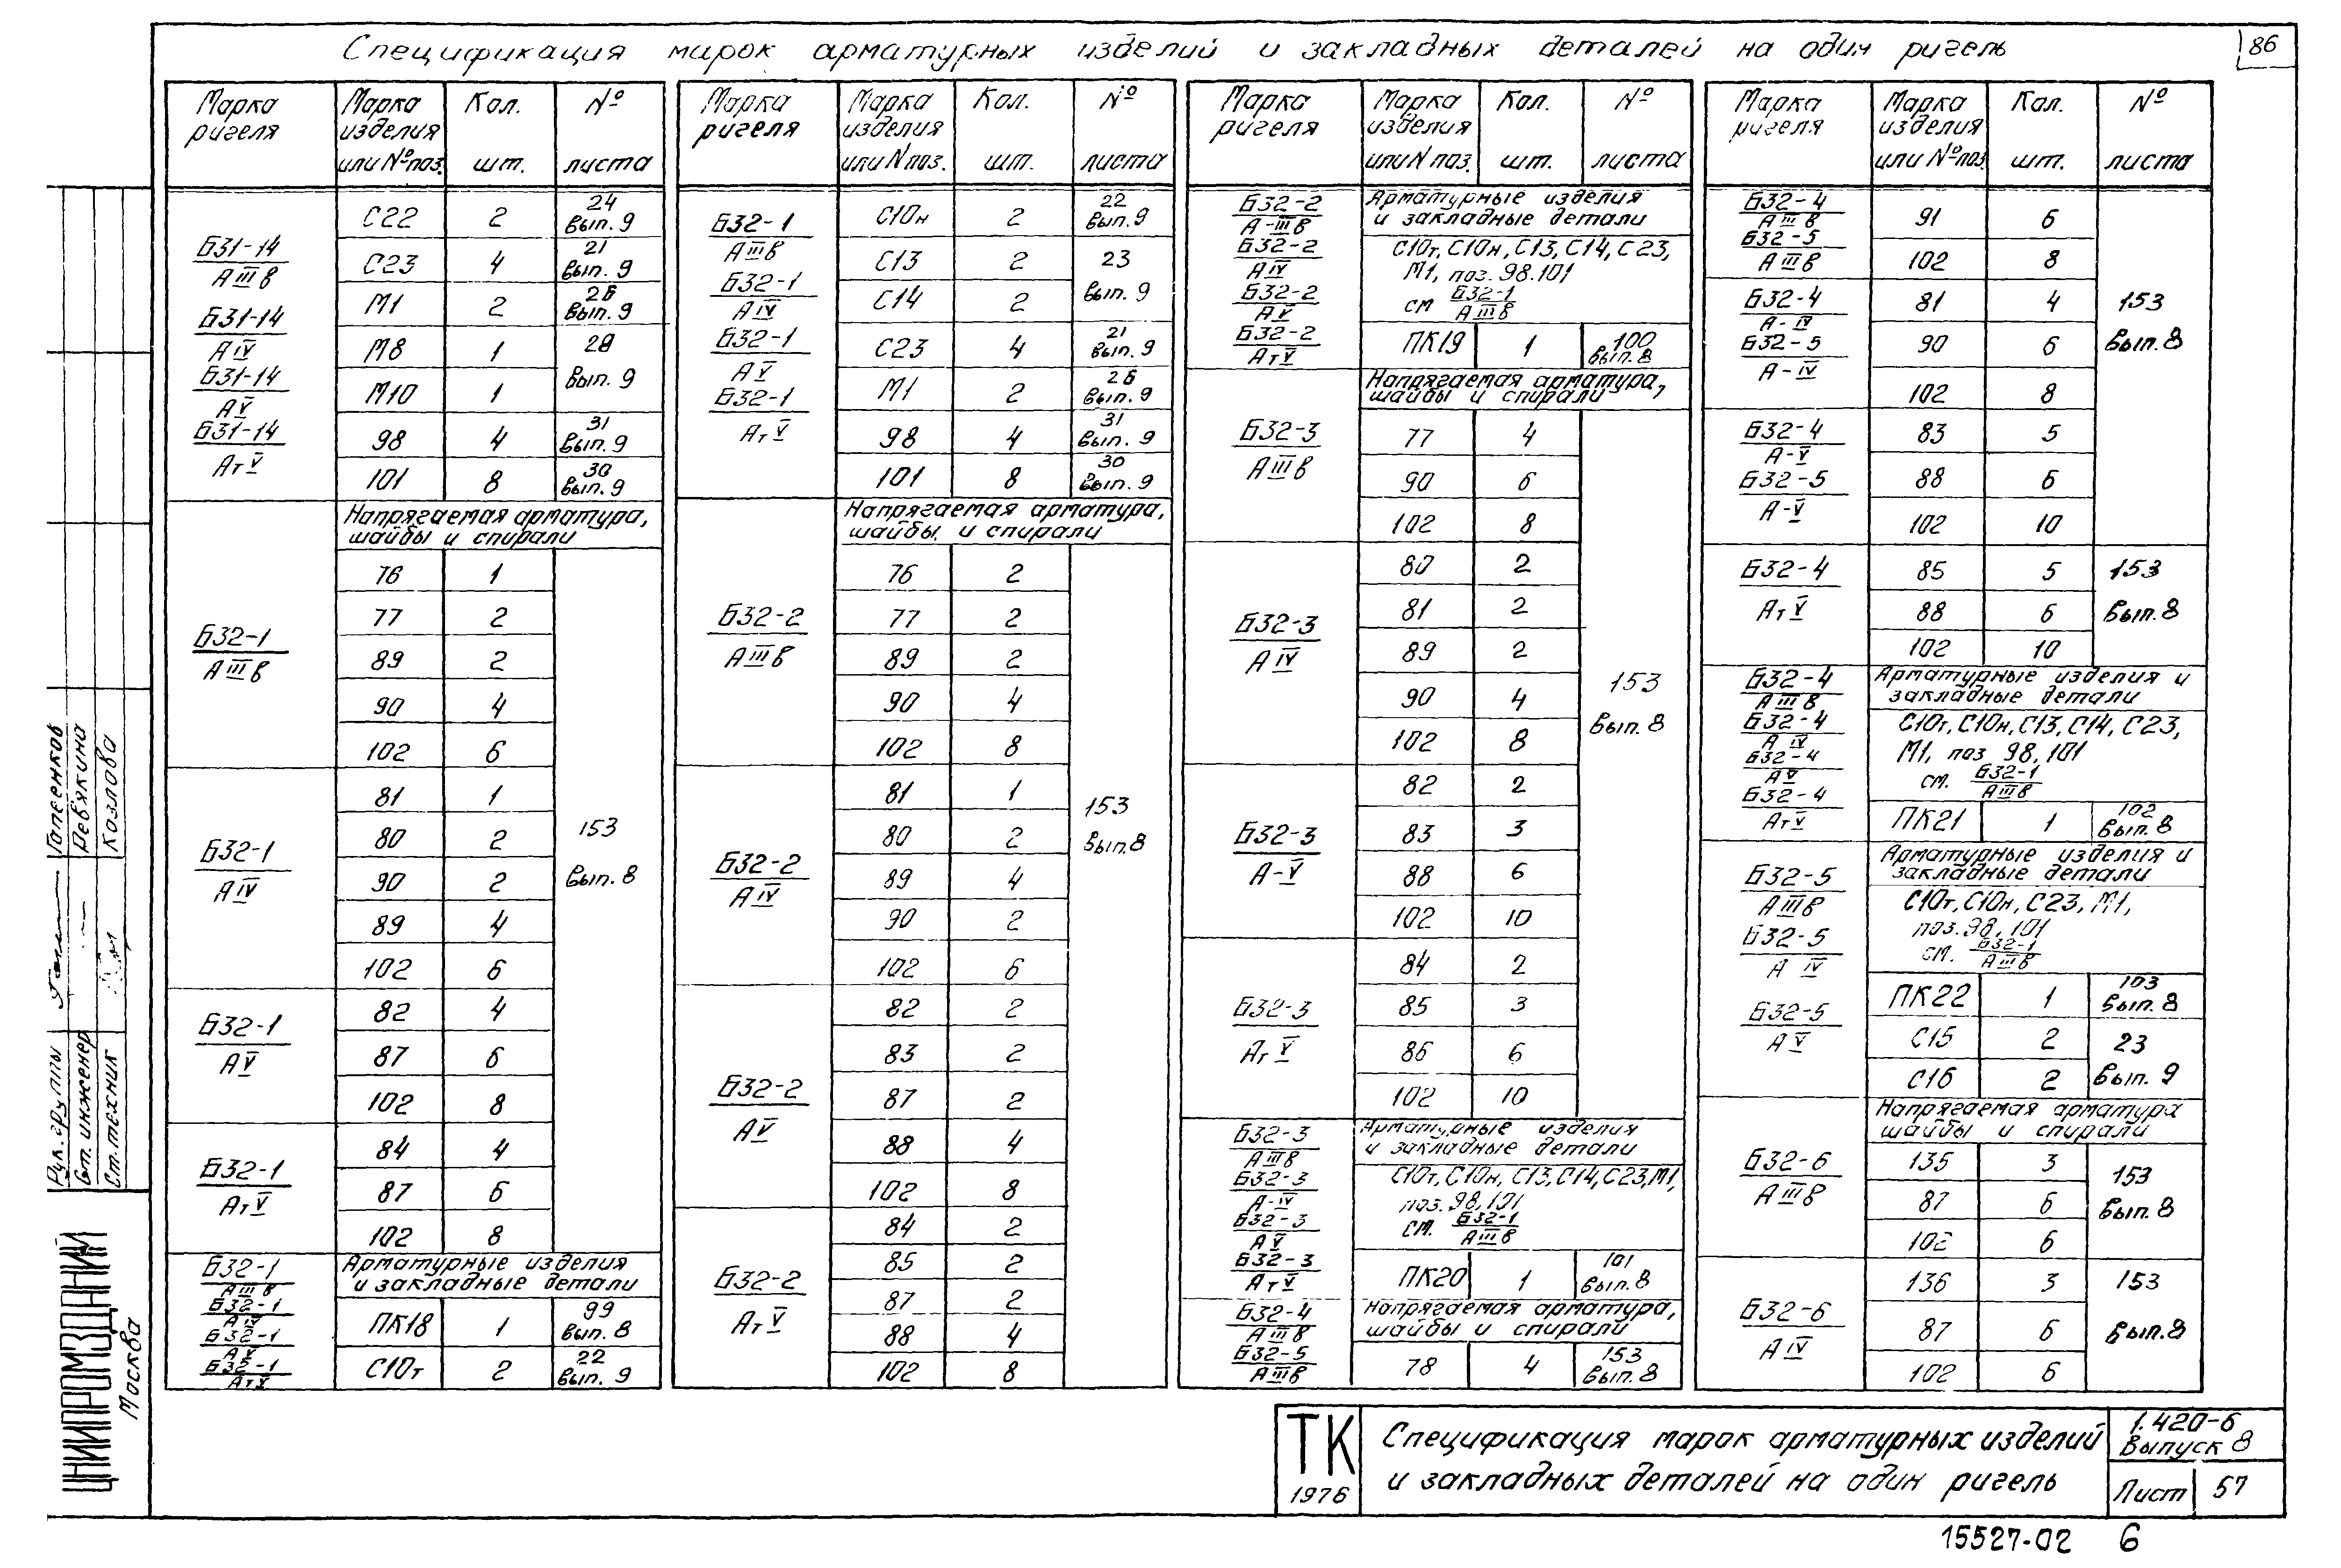 Спецификация марок арматурных изделий и закладных деталей на один ригель
86
Марка ригеля | Марка изделия или № поз. | Кол. шт. | № листа
Б31-14 АIIIв
Б31-14 АIV
Б31-14 АV
Б31-14 АтV
С22 2 24 вып. 9
С23 4 21 вып. 9
М1 2 26 вып. 9
М8 1 28 вып. 9
М10 1
98 4 31 вып. 9
101 8 30 вып. 9
Напрягаемая арматура,
шайбы и спирали
Б32-1 АIIIв
76 1
77 2
89 2
90 4
102 6
153 вып. 8
Б32-1 АIV
81 1
80 2
90 2
89 4
102 6
Б32-1 АV
82 4
87 6
102 8
Б32-1 АтV
84 4
87 6
102 8
Б32-1 АIIIв
Б32-1 АIV
Б32-1 АV
Б32-1 АтV
Арматурные изделия
и закладные детали
ПК18 1 99 вып. 8
С10т 2 22 вып. 9
Марка ригеля | Марка изделия или N поз. | Кол. шт. | № листа
Б32-1 АIIIв
Б32-1 АIV
Б32-1 АV
Б32-1 АтV
С10н 2 22 вып. 9
С13 2 23 вып. 9
С14 2
С23 4 21 вып. 9
М1 2 26 вып. 9
98 4 31 вып. 9
101 8 30 вып. 9
Напрягаемая арматура,
шайбы и спирали
Б32-2 АIIIв
76 2
77 2
89 2
90 4
102 8
153 вып. 8
Б32-2 АIV
81 1
80 2
89 4
90 2
102 6
Б32-2 АV
82 2
83 2
87 2
88 4
102 8
Б32-2 АтV
84 2
85 2
87 2
88 4
102 8
Марка ригеля | Марка изделия или N поз. | Кол. шт. | № листа
Б32-2 А-IIIв
Б32-2 АIV
Б32-2 АV
Б32-2 АтV
Арматурные изделия
и закладные детали
С10т, С10н, С13, С14, С23,
М1, поз. 98.101
см Б32-1 АIIIв
ПК19 1 100 вып. 8
Напрягаемая арматура,
шайбы и спирали
Б32-3 АIIIв
77 4
90 6
102 8
Б32-3 АIV
80 2
81 2
89 2
90 4
102 8
153 вып. 8
Б32-3 А-V
82 2
83 3
88 6
102 10
Б32-3 АтV
84 2
85 3
86 6
102 10
Б32-3 АIIIв
Б32-3 А-IV
Б32-3 АV
Б32-3 АтV
Арматурные изделия
и закладные детали
С10т, С10н, С13, С14, С23, М1,
поз. 98, 101
см. Б32-1 АIIIв
ПК20 1 101 вып. 8
Б32-4 АIIIв
Б32-5 АIIIв
Напрягаемая арматура,
шайбы и спирали
78 4 153 вып. 8
Марка ригеля | Марка изделия или № поз. | Кол. шт. | № листа
Б32-4 АIIIв
Б32-5 АIIIв
91 6
102 8
Б32-4 А-IV
Б32-5 А-IV
81 4
90 6
102 8
153 вып. 8
Б32-4 А-V
Б32-5 А-V
83 5
88 6
102 10
Б32-4 АтV
85 5
88 6
102 10
153 вып. 8
Б32-4 АIIIв
Б32-4 АIV
Б32-4 АV
Б32-4 АтV
Арматурные изделия и
закладные детали
С10т, С10н, С13, С14, С23,
М1, поз 98, 101
см. Б32-1 АIIIв
ПК21 1 102 вып. 8
Б32-5 АIIIв
Б32-5 АIV
Б32-5 АV
Арматурные изделия и
закладные детали
С10т, С10н, С23, М1,
поз. 98, 101
см. Б32-1 АIIIв
ПК22 1 103 вып. 8
С15 2 23 вып. 9
С16 2
Напрягаемая арматура
шайбы и спирали
Б32-6 АIIIв
135 3
87 6
102 6
153 вып. 8
Б32-6 АIV
136 3
87 6
102 6
153 вып. 8
Рук. группы
Ст. инженер Ревякина
Ст. техник Козлова
ЦНИИПРОМЗДАНИЙ
Москва
ТК
1976
Спецификация марок арматурных изделий
и закладных деталей на один ригель
1.420-6
Выпуск 8
Лист 57
15527-02 6